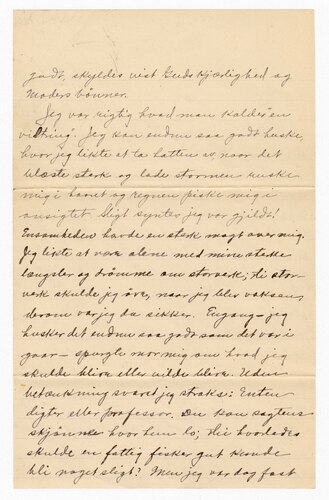 godt, skyldes vist Guds kjærlighed og
Moders bønner.
Jeg var rigtig hvad man kalder "en
vildring". Jeg kan endnu saa godt huske,
hvor jeg likte at ta hatten av, naar det
blæste sterk og lade stormen ruske
mig i haaret og regnen piske mig i
ansigtet. Sligt syntes jeg var gjildt!
Ensomheden havde en sterk magt over mig.
Jeg likte at være alene med mine sterke
længsler og drømme om storverk; ti stor-
verk skulde jeg øve, naar jeg blev voksen,
derom var jeg da sikker. Engang – jeg
husker det endnu saa godt som det var i
gaar – spurgte mor mig om hvad jeg
skulde blive eller vilde blive. Uden
betænkning svared jeg straks: Enten
digter eller professor. Du kan sagtens
skjønne hvor hun lo; thi hvorledes
skulde en fattig fisker gut kunde
bli noget sligt? Men jeg var dog fast